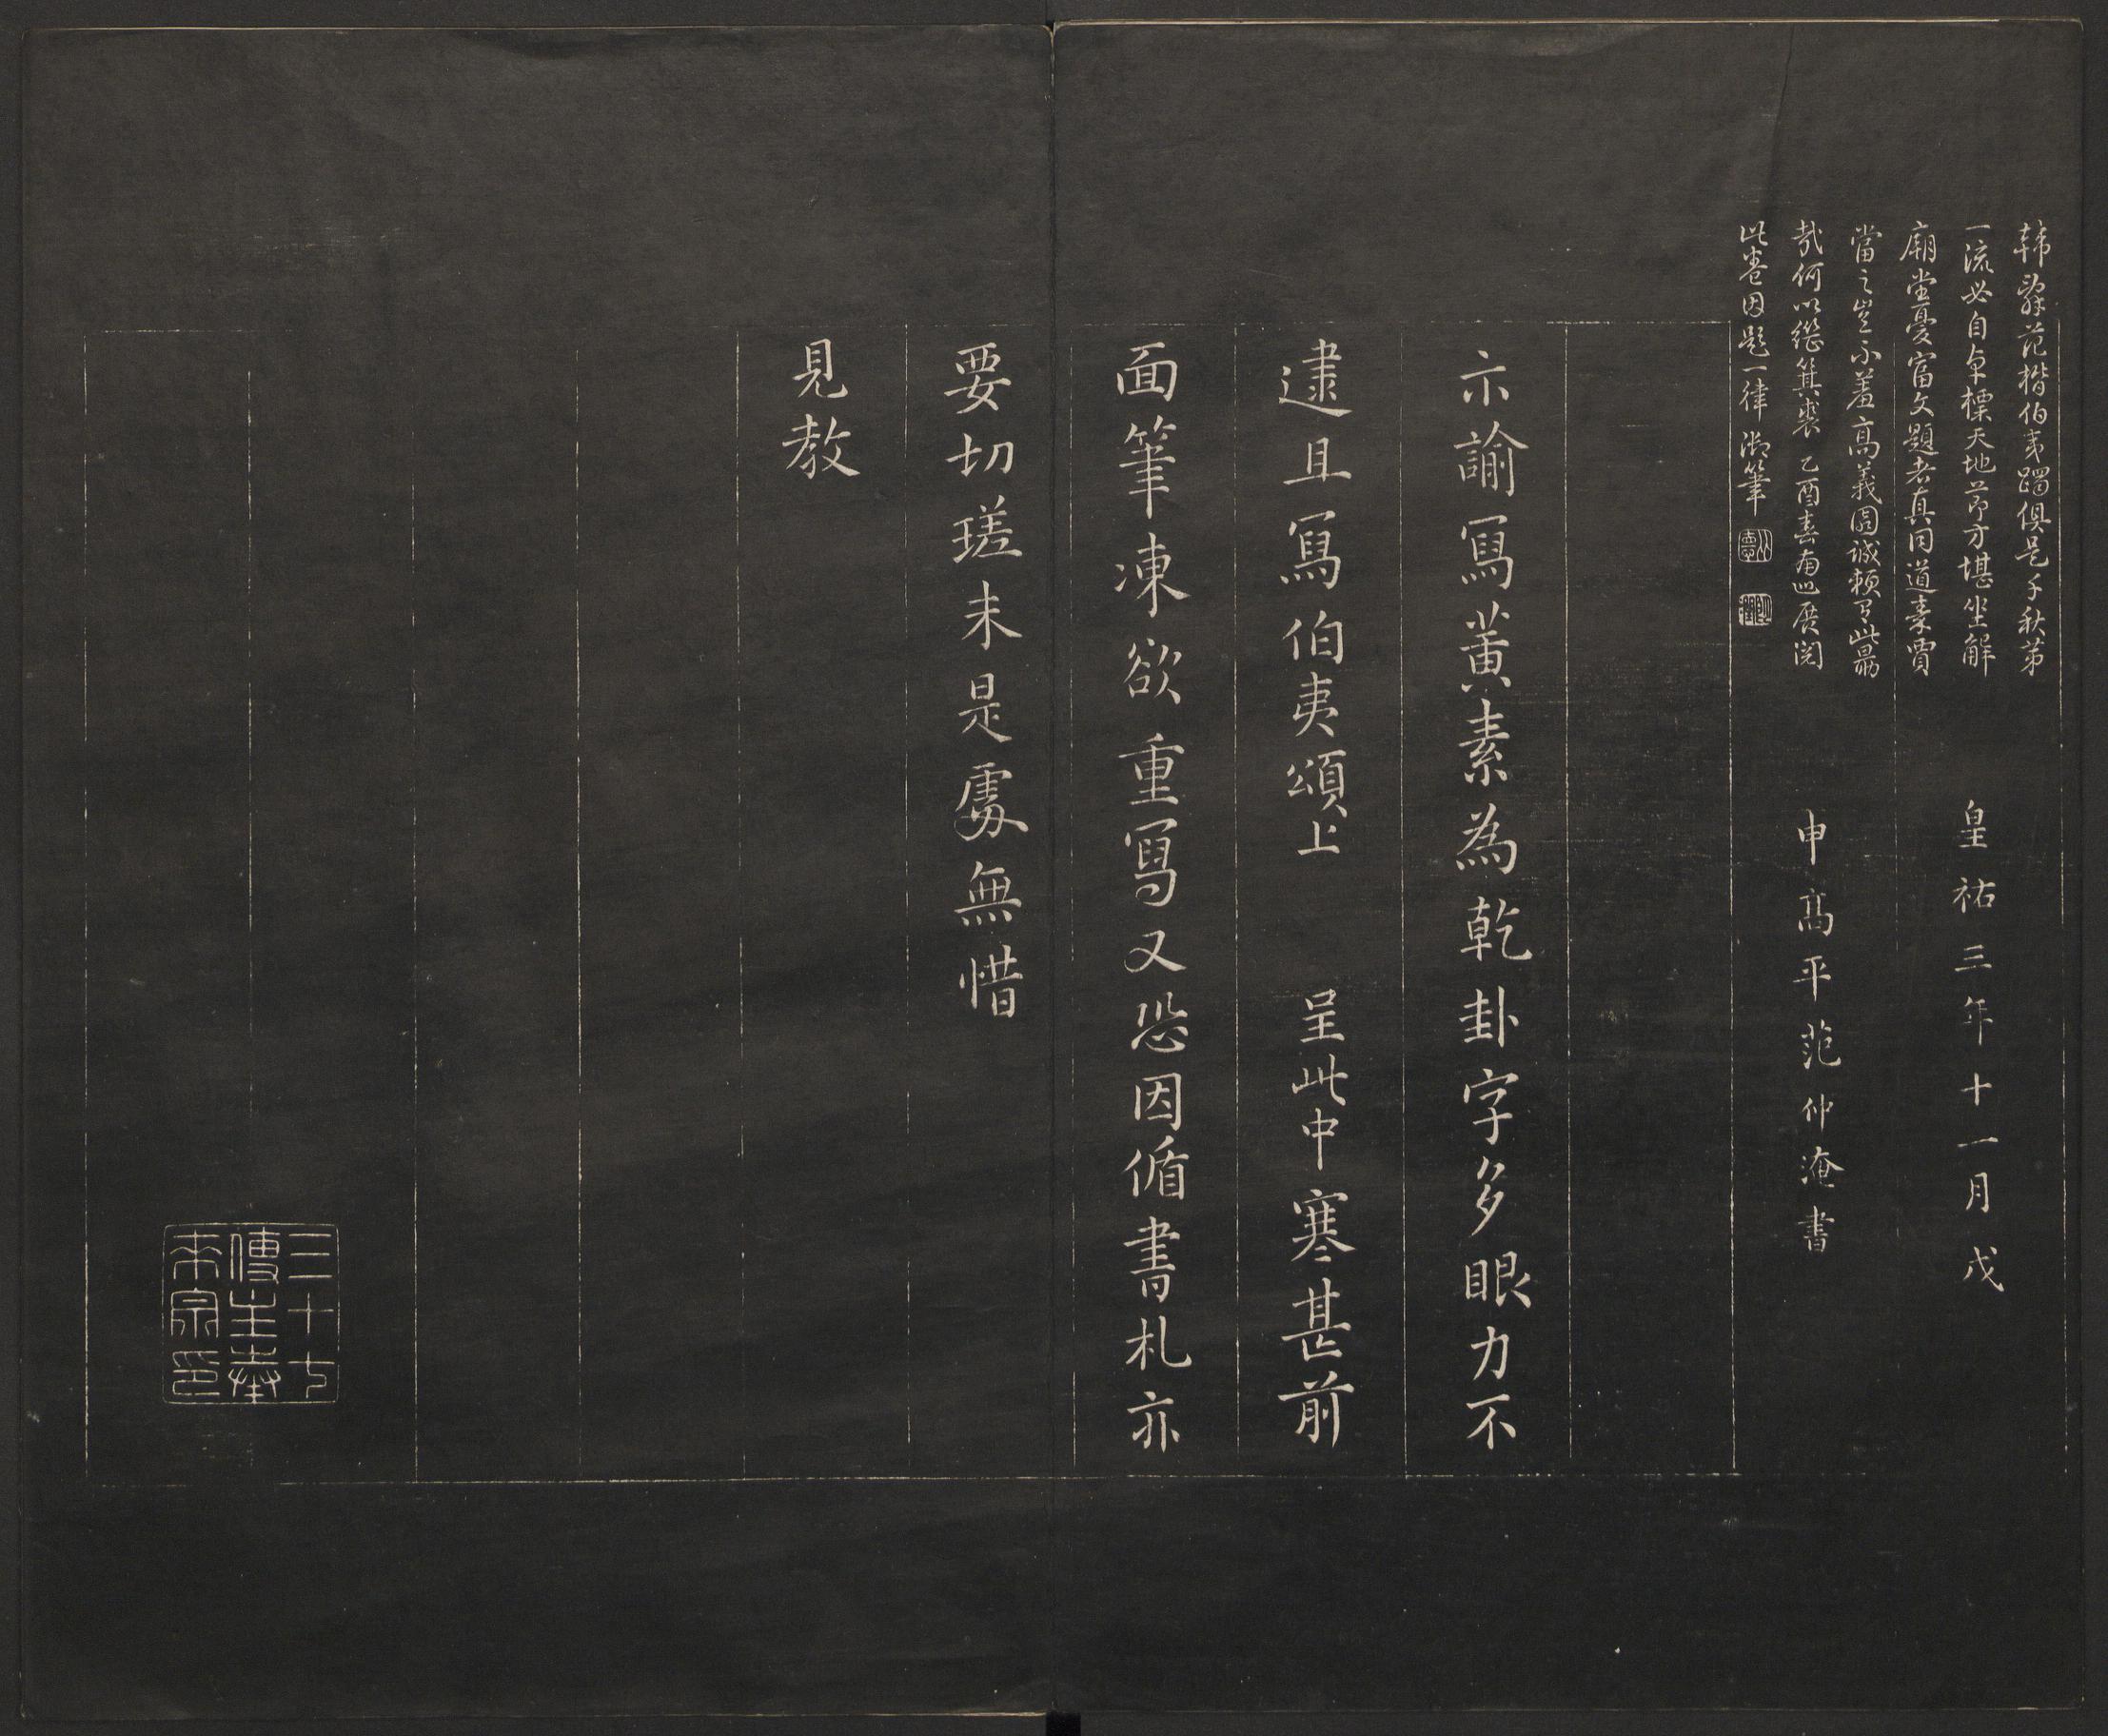 韓辭范楷伯夷躅俱是千秋第
一流必自卓標天地節方堪坐解
廟堂憂富文題者真同道秦賈
當之豈不羞高義園誠賴有此勗
哉何以繼箕裘 乙酉春南巡展閱
此卷因題一律 御筆
皇祐三年十一月戊
申高平范仲淹書
示諭寫黃素為乾卦字多眼力不
逮且寫伯夷頌上 呈此中寒甚前
面筆凍欲重寫又恐因循書札亦
要切瑳未是處無惜
見教
三十七
傳主奉
本宗印